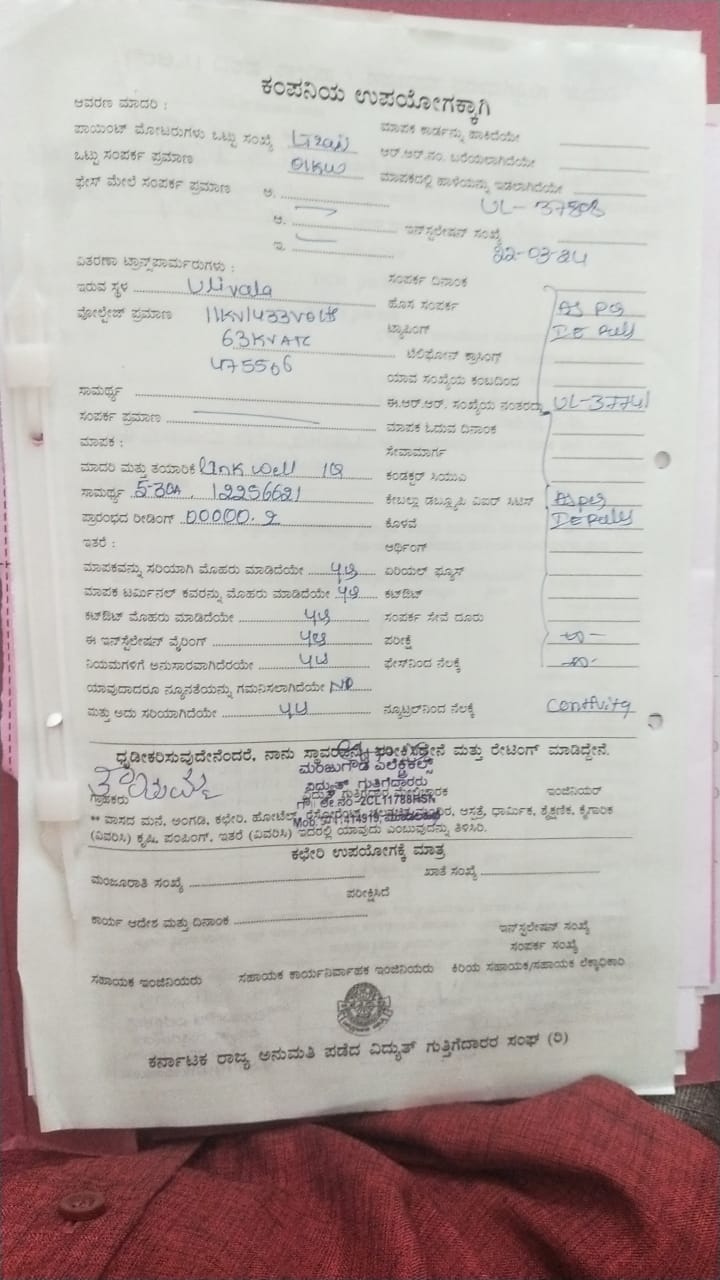 ಕಂಪನಿಯ ಉಪಯೋಗಕ್ಕಾಗಿ
ಆವರಣ ಮಾದರಿ :
ಪಾಯಿಂಟ್ ಮೋಟರುಗಳು ಒಟ್ಟು ಸಂಖ್ಯೆ
ಒಟ್ಟು ಸಂಪರ್ಕ ಪ್ರಮಾಣ 01KW
ಫೇಸ್ ಮೇಲೆ ಸಂಪರ್ಕ ಪ್ರಮಾಣ ಅ.
ಆ.
ಇ.
ಮಾಪಕ ಕಾರ್ಡನ್ನು ಹಾಕಿದೆಯೇ
ಆರ್.ಆರ್.ನಂ. ಬರೆಯಲಾಗಿದೆಯೇ
ಮಾಪಕದಲ್ಲಿ ಹಾಳೆಯನ್ನು ಇಡಲಾಗಿದೆಯೇ
UL-
ಇನ್ಸ್ಟಲೇಷನ್ ಸಂಖ್ಯೆ
22-03-24
ವಿತರಣಾ ಟ್ರಾನ್ಸ್‌ಪಾರ್ಮರುಗಳು :
ಇರುವ ಸ್ಥಳ Ulivala
ವೋಲ್ಟೇಜ್ ಪ್ರಮಾಣ 11KV/433Volts
63KVATC
475506
ಸಾಮರ್ಥ್ಯ
ಸಂಪರ್ಕ ಪ್ರಮಾಣ
ಸಂಪರ್ಕ ದಿನಾಂಕ
ಹೊಸ ಸಂಪರ್ಕ As per
ಟ್ಯಾಪಿಂಗ್ IE Rules
ಟೆಲಿಫೋನ್ ಕ್ರಾಸಿಂಗ್
ಯಾವ ಸಂಖ್ಯೆಯ ಕಂಬದಿಂದ
ಈ.ಆರ್.ಆರ್. ಸಂಖ್ಯೆಯ ನಂತರದ್ದು UL-37741
ಮಾಪಕ ಓದುವ ದಿನಾಂಕ
ಮಾಪಕ :
ಮಾದರಿ ಮತ್ತು ತಯಾರಿಕೆ Linkwell 1Q
ಸಾಮರ್ಥ್ಯ 5-30A, 12256621
ಪ್ರಾರಂಭದ ರೀಡಿಂಗ್ 00000.2
ಇತರೆ :
ಸೇವಾಮಾರ್ಗ
ಕಂಡಕ್ಟರ್ ಸಿಯುಎ
ಕೇಬಲ್ಲು ಡಬ್ಲ್ಯೂಪಿ ವಿಐರ್ ಸಿಟಿಸ್ As per
ಕೊಳವೆ IE Rules
ಆರ್ಥಿಂಗ್
ಮಾಪಕವನ್ನು ಸರಿಯಾಗಿ ಮೊಹರು ಮಾಡಿದೆಯೇ yes ಏರಿಯಲ್ ಫ್ಯೂಸ್
ಮಾಪಕ ಟರ್ಮಿನಲ್ ಕವರನ್ನು ಮೊಹರು ಮಾಡಿದೆಯೇ yes ಕಟ್‌ಔಟ್
ಕಟ್‌ಔಟ್ ಮೊಹರು ಮಾಡಿದೆಯೇ yes ಸಂಪರ್ಕ ಸೇವೆ ದೂರು
ಈ ಇನ್‌ಸ್ಟೆಲೇಷನ್ ವೈರಿಂಗ್ yes ಪರೀಕ್ಷೆ
ನಿಯಮಗಳಿಗೆ ಅನುಸಾರವಾಗಿದೆಯೇ yes ಫೇಸ್‌ನಿಂದ ನೆಲಕ್ಕೆ
ಯಾವುದಾದರೂ ನ್ಯೂನತೆಯನ್ನು ಗಮನಿಸಲಾಗಿದೆಯೇ No
ಮತ್ತು ಅದು ಸರಿಯಾಗಿದೆಯೇ yes ನ್ಯೂಟ್ರಲ್‌ನಿಂದ ನೆಲಕ್ಕೆ
ಧೃಡೀಕರಿಸುವುದೇನೆಂದರೆ, ನಾನು ಸ್ಥಾವರವನ್ನು ಪರೀಕ್ಷಿಸಿದ್ದೇನೆ ಮತ್ತು ರೇಟಿಂಗ್ ಮಾಡಿದ್ದೇನೆ.
ಮಂಜುಗೌಡ ಎಲೆಕ್ಟ್ರಿಕಲ್ಸ್
ವಿದ್ಯುತ್ ಗುತ್ತಿಗೆದಾರರು
ಗ್ರಾಹಕರು ಇಂಜಿನಿಯರ್
** ವಾಸದ ಮನೆ, ಅಂಗಡಿ, ಕಛೇರಿ, ಹೋಟೆಲ್, ಆಸ್ಪತ್ರೆ, ಧಾರ್ಮಿಕ, ಶೈಕ್ಷಣಿಕ, ಕೈಗಾರಿಕ
(ವಿವರಿಸಿ) ಕೃಷಿ, ಪಂಪಿಂಗ್, ಇತರೆ (ವಿವರಿಸಿ) ಇದರಲ್ಲಿ ಯಾವುದು ಎಂಬುವುದನ್ನು ತಿಳಿಸಿರಿ.
ಕಛೇರಿ ಉಪಯೋಗಕ್ಕೆ ಮಾತ್ರ
ಮಂಜೂರಾತಿ ಸಂಖ್ಯೆ ಖಾತೆ ಸಂಖ್ಯೆ
ಪರೀಕ್ಷಿಸಿದೆ
ಕಾರ್ಯ ಆದೇಶ ಮತ್ತು ದಿನಾಂಕ
ಇನ್‌ಸ್ಟಲೇಷನ್ ಸಂಖ್ಯೆ
ಸಂಪರ್ಕ ಸಂಖ್ಯೆ
ಸಹಾಯಕ ಇಂಜಿನಿಯರು ಸಹಾಯಕ ಕಾರ್ಯನಿರ್ವಾಹಕ ಇಂಜಿನಿಯರು ಕಿರಿಯ ಸಹಾಯಕ/ಸಹಾಯಕ ಲೆಕ್ಕಾಧಿಕಾರಿ
ಕರ್ನಾಟಕ ರಾಜ್ಯ ಅನುಮತಿ ಪಡೆದ ವಿದ್ಯುತ್ ಗುತ್ತಿಗೆದಾರರ ಸಂಘ (ರಿ)